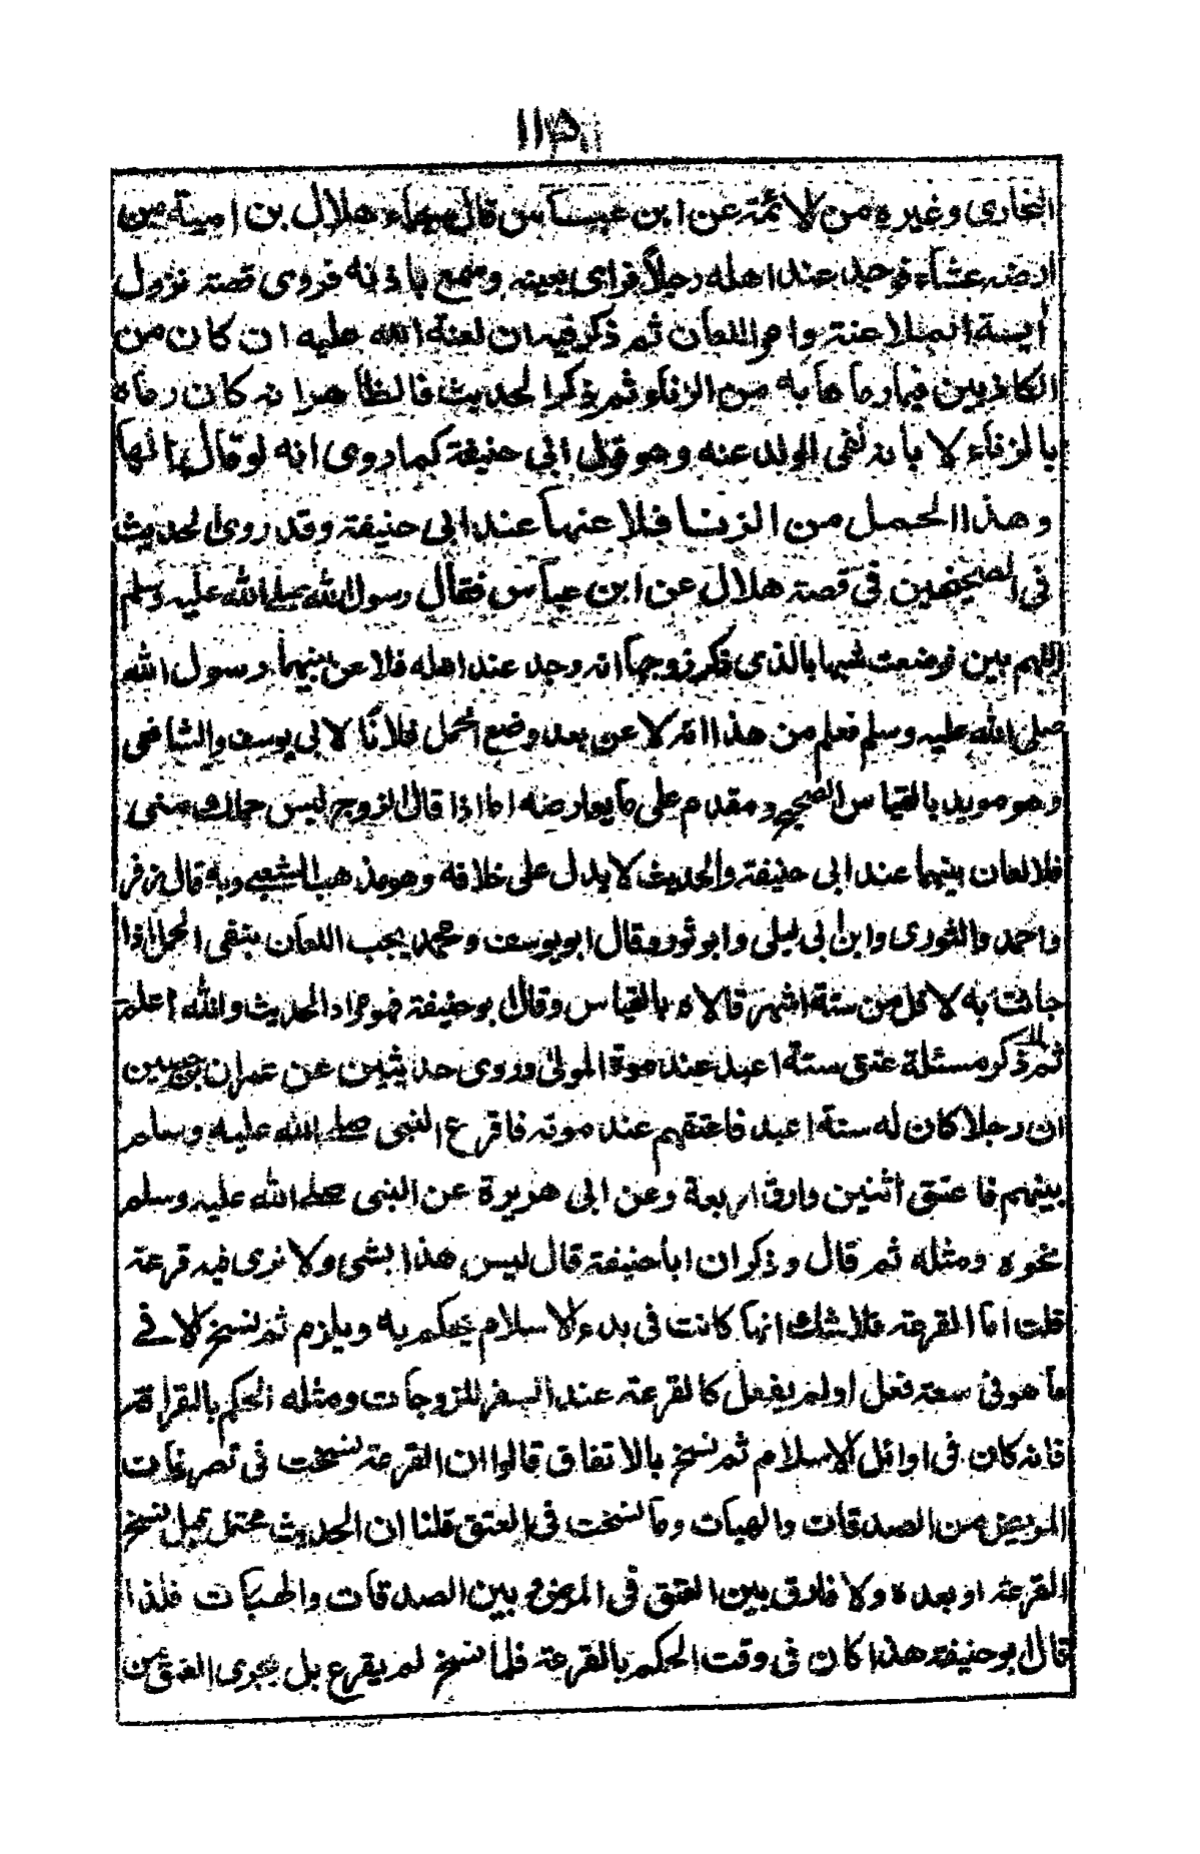 ١١٥
البخارى وغيره من الائمة عن ابن عباس قال جاء هلال بن امية من
ارضه عشاء فوجد عند اهله رجلاً فراى بعينه وسمع باذنه فروى قصة نزول
آية الملاعنة وامر اللعان ثم ذكر فيه ان لعنة الله عليه ان كان من
الكاذبين فيما رماها به من الزناء ثم ذكر الحديث فالظاهر انه كان رماه
بالزناء لا بانه نفى الولد عنه وهو قول ابى حنيفة كما روى انه لو قال لها
وهذا الحمل من الزنا فلاعنها عند ابى حنيفة وقد روى الحديث
فى الصحيحين فى قصة هلال عن ابن عباس فقال رسول الله صلى الله عليه وسلم
اللهم بين فوضعت شبها بالذى ذكر زوجها انه وجد عند اهله فلاعن بينهما رسول الله
صلى الله عليه وسلم فعلم من هذا انه لاعن بعد وضع الحمل فلانا لابى يوسف والشافعى
وهو مويد بالقياس الصحيح ومقدم على ما يعارضه اما اذا قال الزوج ليس حملك منى
فلا لعان بينهما عند ابى حنيفة والحديث لا يدل على خلافه وهو مذهب الشعبى وبه قال زفر
واحمد والثورى وابن ابى ليلى وابو ثور وقال ابو يوسف ومحمد يجب اللعان بنفى الحمل اذا
جاءت به لاقل من ستة اشهر قالاه بالقياس وقال ابو حنيفة فهو مراد الحديث والله اعلم
ثم ذكر مسئلة عتق ستة اعبد عند موة المولى وروى حديثين عن عمران بن حصين
ان رجلا كان له ستة اعبد فاعتقهم عند موته فاقرع النبى صلى الله عليه وسلم
بينهم فاعتق اثنين وارق اربعة وعن ابى هريرة عن النبى صلى الله عليه وسلم
نحوه ومثله ثم قال وذكر ان ابا حنيفة قال ليس هذا بشى ولا نرى فيه قرعة
قلت اما القرعة فلا شك انها كانت فى بدء الاسلام يحكم به ويلزم ثم نسخ كلا فى
ما هو فى سعة فعل او لم يفعل كالقرعة عند السفر للزوجات ومثله الحكم بالقرافة
فانه كان فى اوائل الاسلام ثم نسخ بالاتفاق قالوا ان القرعة نسخت فى تصرفات
المريض من الصدقات والهبات وما نسخت فى العتق قلنا ان الحديث محتمل قبل نسخ
القرعة او بعده ولا فارق بين العتق فى المرض وبين الصدقات والهبات فلذا
قال ابو حنيفة هذا كان فى وقت الحكم بالقرعة فلما نسخ لم يقرع بل يجرى العتق من